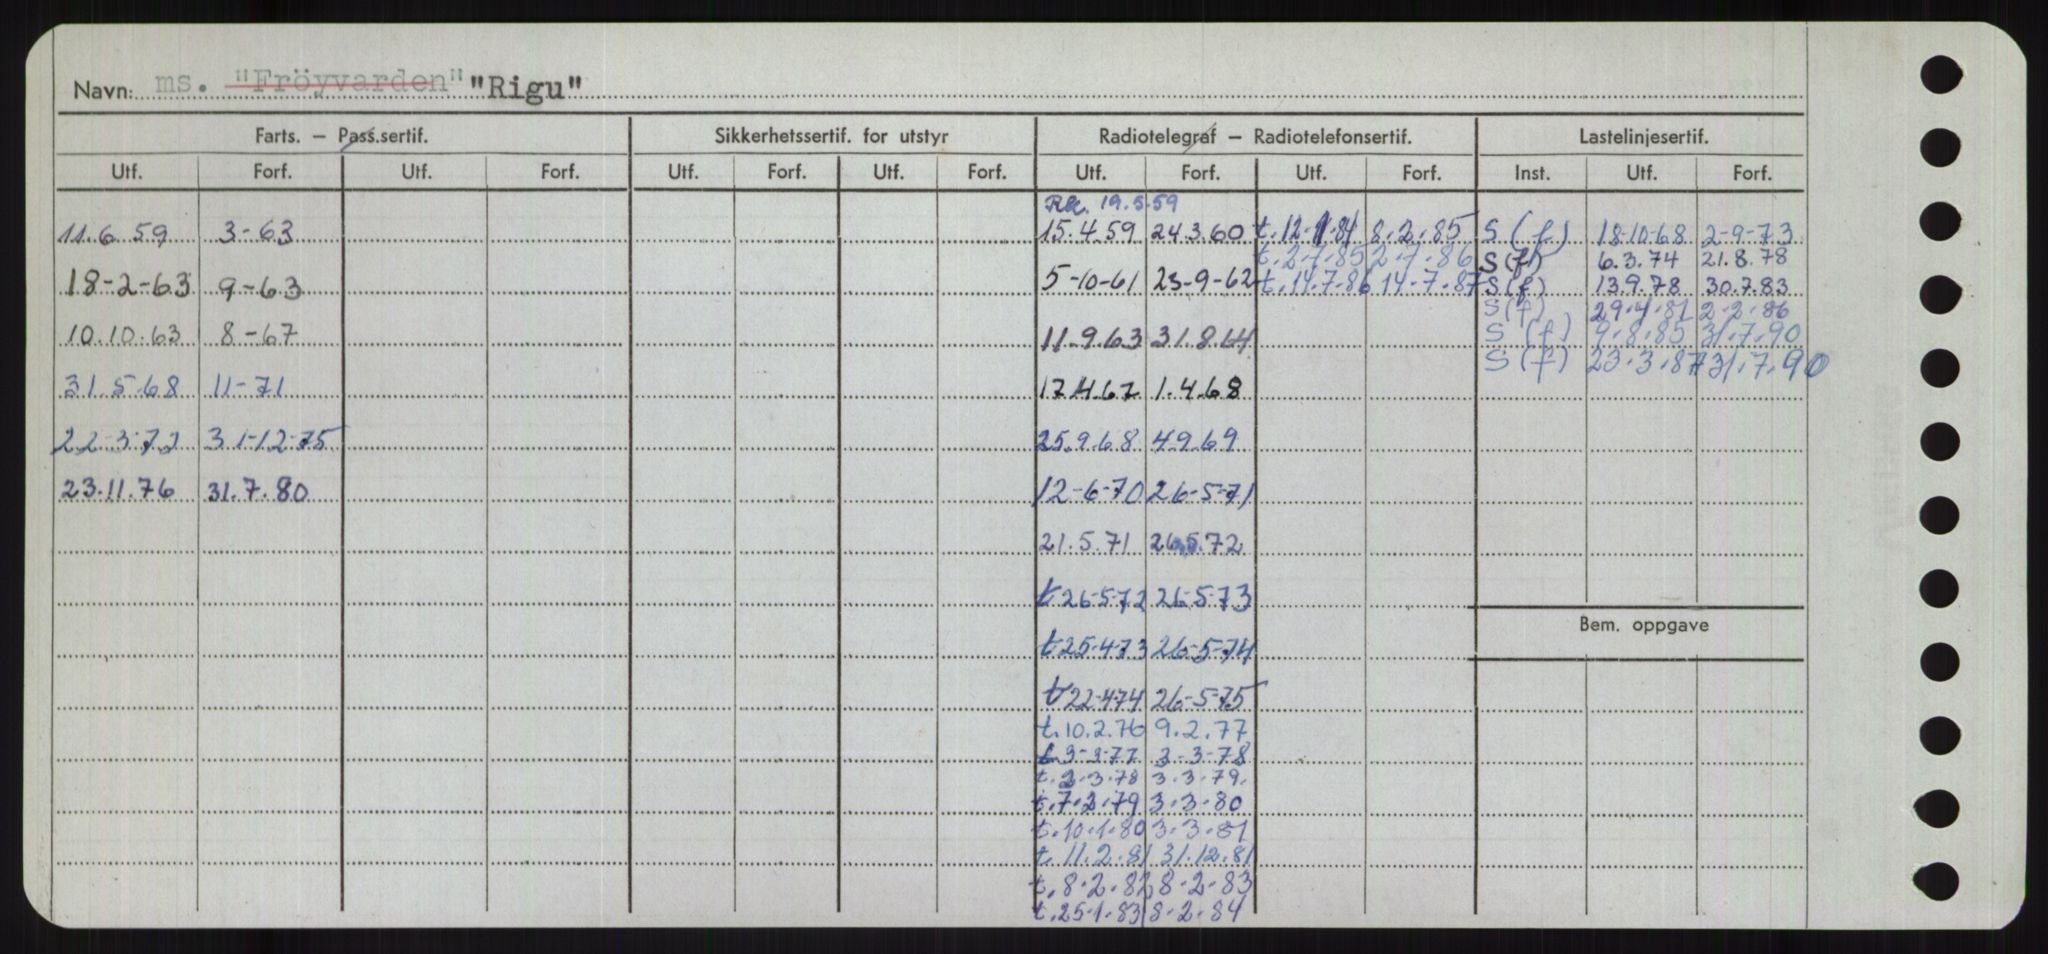 Navn: ms. "Fröyvarden" "Rigu"
Farts. – Pass.sertif. Sikkerhetssertif. for utstyr Radiotelegraf – Radiotelefonsertif. Lastelinjesertif.
Utf. Forf. Utf. Forf. Utf. Forf. Utf. Forf. Utf. Forf. Utf. Forf. Inst. Utf. Forf.
11.6.59 3-63
18-2-63 9-63
10.10.63 8-67
31.5.68 11-71
22-3-72 31-12-75
23.11.76 31.7.80
19.5.59
15.4.59 24.3.60
5-10-61 23-9-62
11.9.63 31.8.64
17.4.67 1.4.68
25.9.68 4.9.69
12-6-70 26-5-71
21.5.71 26.5.72
t 26-5-72 26-5-73
t 25-4-73 26-5-74
t 22-4-74 26-5-75
t. 10.2.76 9.2.77
t 3-3-77 3-3-78
t. 2-3-78 3.3.79.
t. 7.2.79 3.3.80
t. 10.1.80 3.3.81
t. 11.2.81 31.12.81
t. 8.2.82 8.2.83
t. 25.1.83 8.2.84
t. 12.1.84 8.2.85
t. 2.7.85 2.7.86
t. 14.7.86 14.7.87
S (f) 18-10-68 2-9-73
S (f) 6.3.74 21.8.78
S (f) 13.9.78 30.7.83
S (f) 29.4.81 2.2.86
S (f) 9.8.85 31.7.90
S (f) 23.3.87 31.7.90
Bem. oppgave